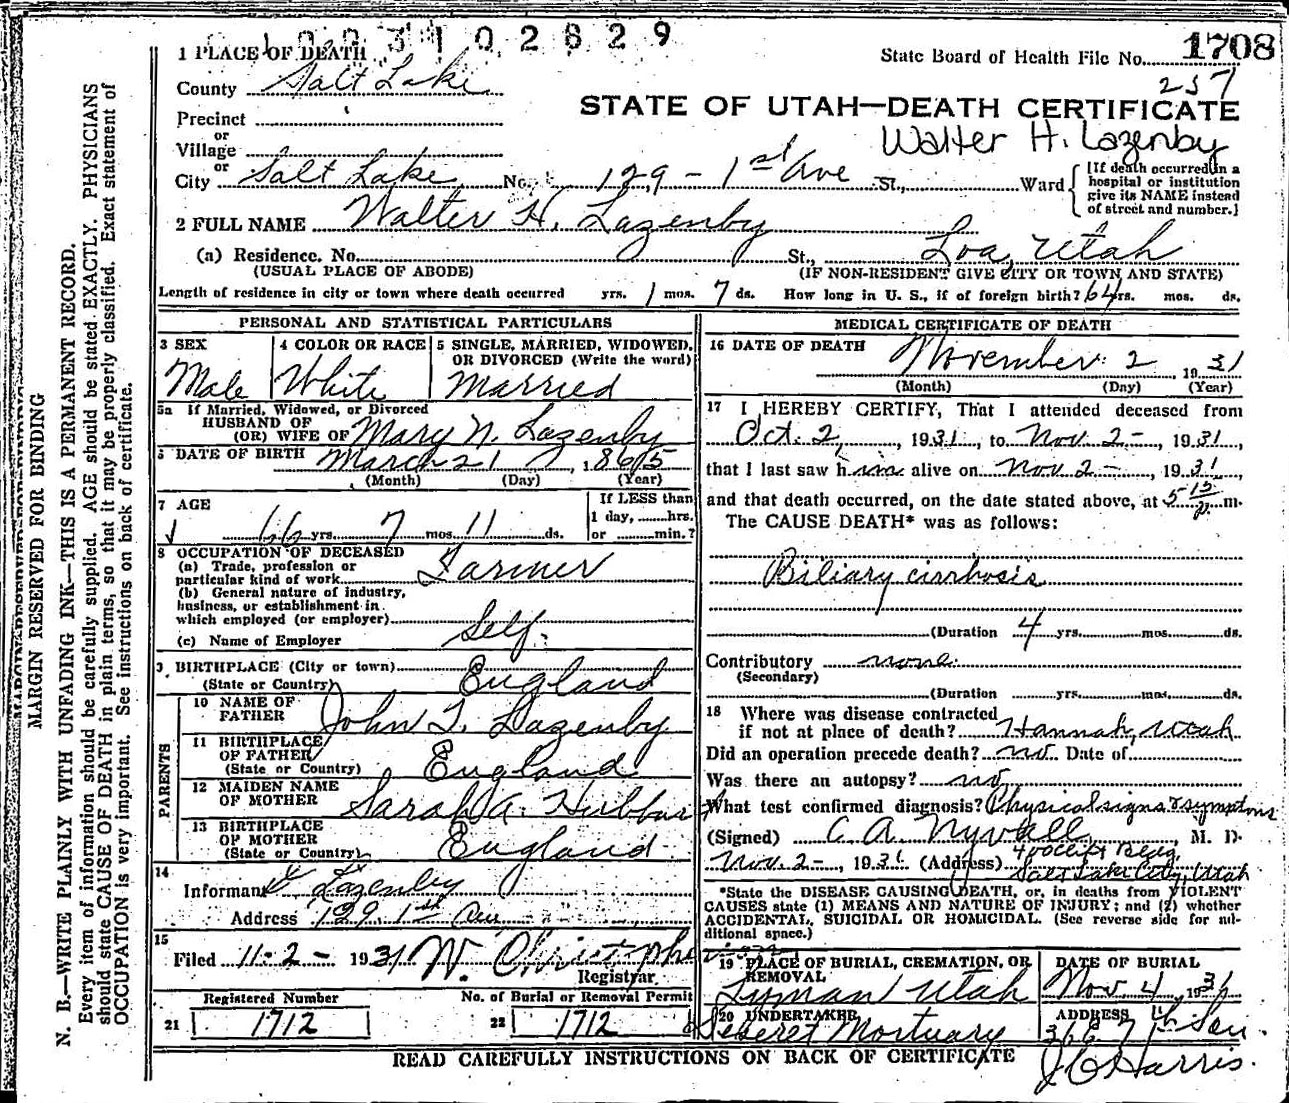 1003102829
1 PLACE OF DEATH
State Board of Health File No. 1708
257
County Salt Lake
STATE OF UTAH—DEATH CERTIFICATE
Precinct
or
Walter H. Lazenby
Village
or
City Salt Lake No. 129 - 1st Ave St., Ward
[If death occurred in a
hospital or institution
give its NAME instead
of street and number.]
2 FULL NAME Walter H. Lazenby
(a) Residence. No. St., Loa, Utah
(USUAL PLACE OF ABODE) (IF NON-RESIDENT GIVE CITY OR TOWN AND STATE)
Length of residence in city or town where death occurred yrs. 1 mos. 7 ds. How long in U. S., if of foreign birth? 64 yrs. mos. ds.
PERSONAL AND STATISTICAL PARTICULARS
3 SEX 4 COLOR OR RACE 5 SINGLE, MARRIED, WIDOWED,
OR DIVORCED (Write the word)
Male White Married
5a If Married, Widowed, or Divorced
HUSBAND OF
(OR) WIFE OF Mary N. Lazenby
6 DATE OF BIRTH March 21 1865
(Month) (Day) (Year)
7 AGE If LESS than
1 day, hrs.
66 yrs. 7 mos. 11 ds. or min.?
8 OCCUPATION OF DECEASED
(a) Trade, profession or
particular kind of work Farmer
(b) General nature of industry,
business, or establishment in
which employed (or employer)
(c) Name of Employer Self.
9 BIRTHPLACE (City or town)
(State or Country) England
PARENTS
10 NAME OF
FATHER John T. Lazenby
11 BIRTHPLACE
OF FATHER
(State or Country) England
12 MAIDEN NAME
OF MOTHER Sarah A. Hubbard
13 BIRTHPLACE
OF MOTHER
(State or Country) England
14
Informant Lazenby
Address 129 1st Ave
15
Filed 11-2- 1931 W. Christopher
Registrar
Registered Number No. of Burial or Removal Permit
21 1712 22 1712
MEDICAL CERTIFICATE OF DEATH
16 DATE OF DEATH November 2, 1931
(Month) (Day) (Year)
17 I HEREBY CERTIFY, That I attended deceased from
Oct. 2, 1931, to Nov. 2-, 1931,
that I last saw him alive on Nov 2-, 1931
and that death occurred, on the date stated above, at 5 15 p. m.
The CAUSE DEATH* was as follows:
Biliary cirrhosis
(Duration 4 yrs. mos. ds.
Contributory none.
(Secondary)
(Duration yrs. mos. ds.
18 Where was disease contracted
if not at place of death? Hannah, Utah
Did an operation precede death? no Date of
Was there an autopsy? no
What test confirmed diagnosis? Physical signs & symptoms
(Signed) C. A. Nyvall, M. D.
Nov. 2-, 1931 (Address) Bldg.
Salt Lake City, Utah
*State the DISEASE CAUSING DEATH, or, in deaths from VIOLENT
CAUSES state (1) MEANS AND NATURE OF INJURY; and (2) whether
ACCIDENTAL, SUICIDAL OR HOMICIDAL. (See reverse side for ad-
ditional space.)
19 PLACE OF BURIAL, CREMATION, OR
REMOVAL
DATE OF BURIAL
Lyman Utah Nov 4, 1931
20 UNDERTAKER ADDRESS
Deseret Mortuary 36 E 7th Sou.
READ CAREFULLY INSTRUCTIONS ON BACK OF CERTIFICATE
J C Harris.
MARGIN RESERVED FOR BINDING
N. B.—WRITE PLAINLY WITH UNFADING INK—THIS IS A PERMANENT RECORD.
Every item of information should be carefully supplied. AGE should be stated EXACTLY. PHYSICIANS
should state CAUSE OF DEATH in plain terms, so that it may be properly classified. Exact statement of
OCCUPATION is very important. See instructions on back of certificate.